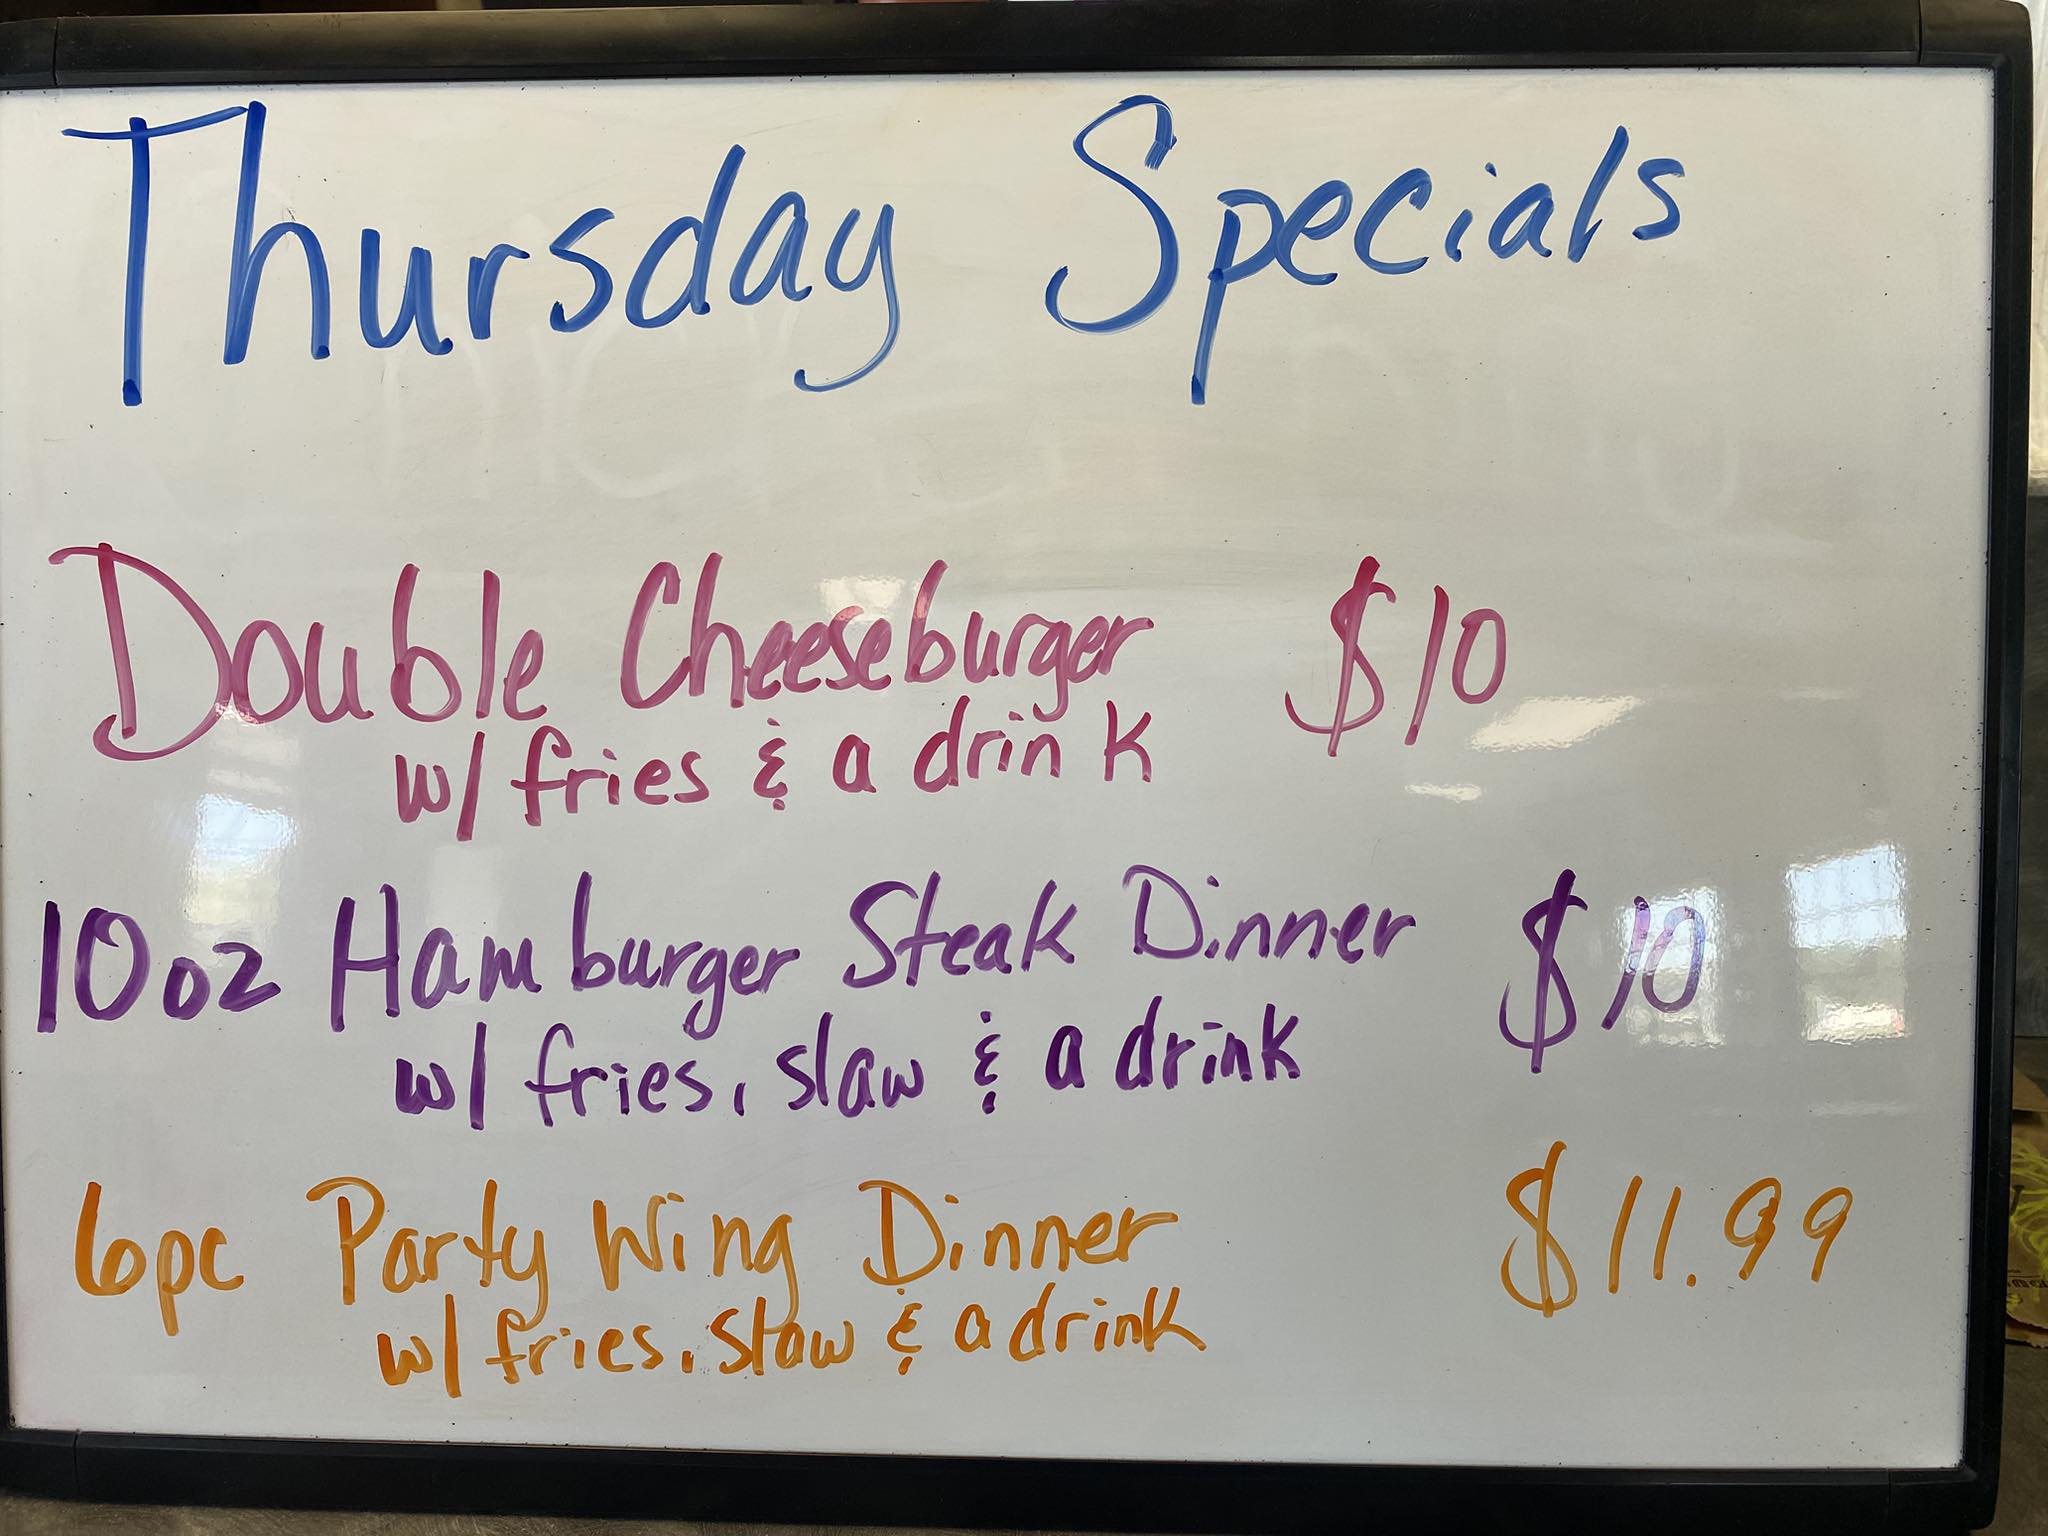 Thursday Specials
Double Cheeseburger $10
w/ fries & a drink
10 oz Hamburger Steak Dinner $10
w/ fries, slaw & a drink
6pc Party Wing Dinner $11.99
w/ fries, slaw & a drink